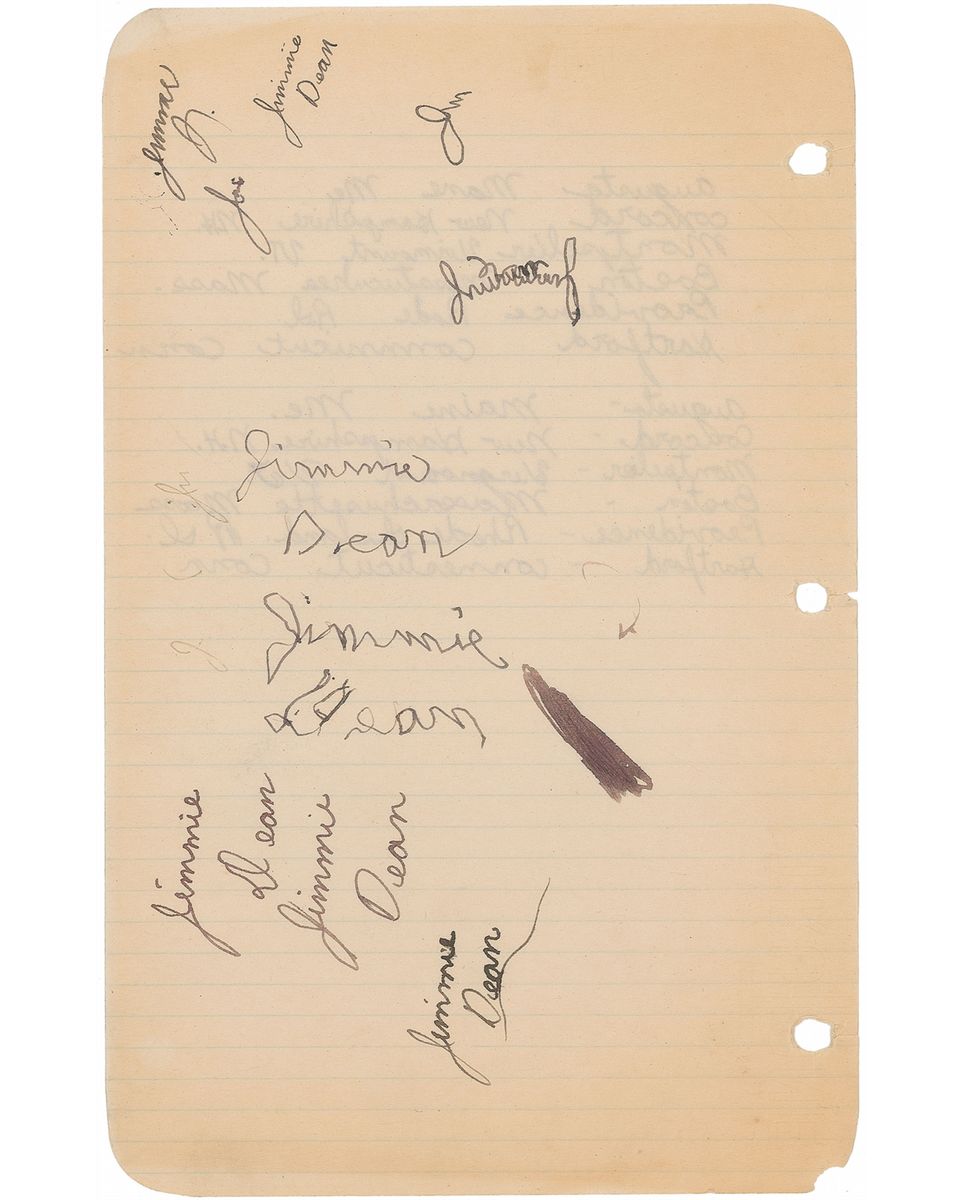 Jimmie
D.
Jimmie
Dean
Jim
Joe
Jimmie
Dean
Jimmie
Dean
Jimmie
Dean
Jimmie
Dean
Jimmie
Dean
J.
Augusta Mane Me
Concord New Hampshire NH
Vt.
Boston Mass.
Providence
Hartford Connecticut Conn
Augusta - Maine Me.
Concord - New Hampshire N.H.
Montpelier -
Boston - Massachusetts Mass
Providence - Rhode Island R.I.
Hartford - Connecticut Conn